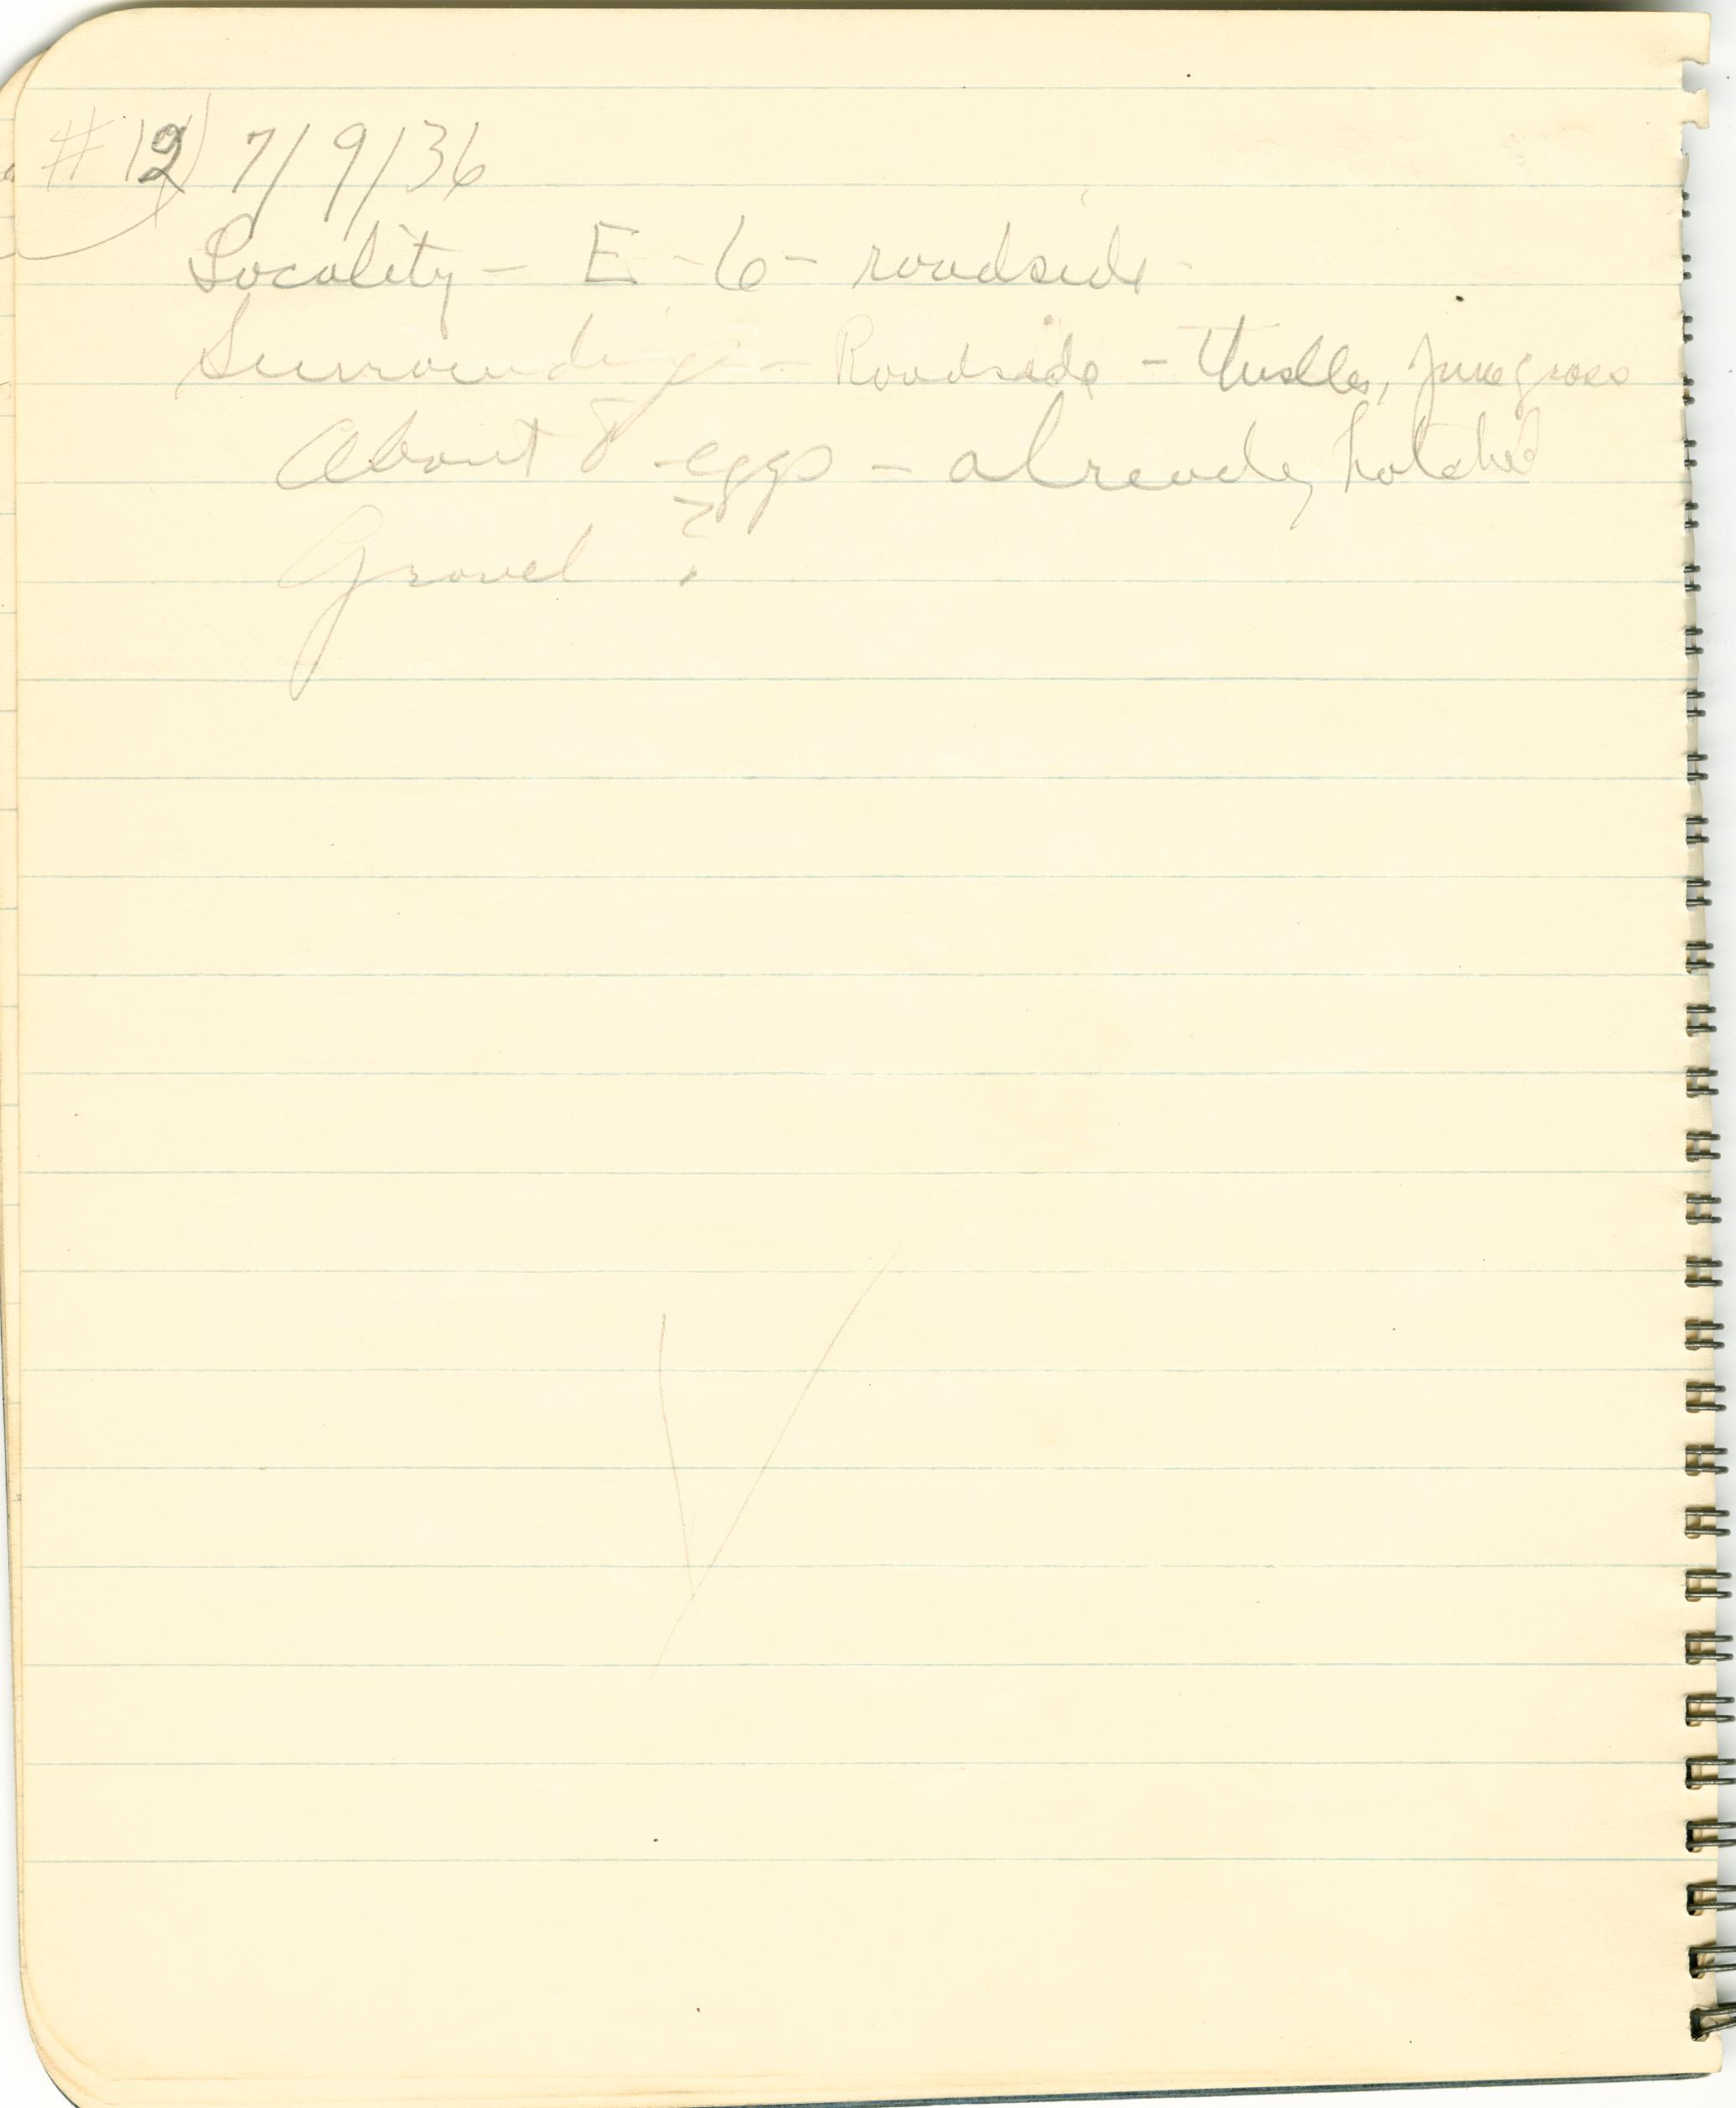 #12) 7/9/36
Locality - E - 6 - roadside -
Surroundings - Roadside - thistles, Junegrass
About 8 eggs - already hatched
Gravel ?